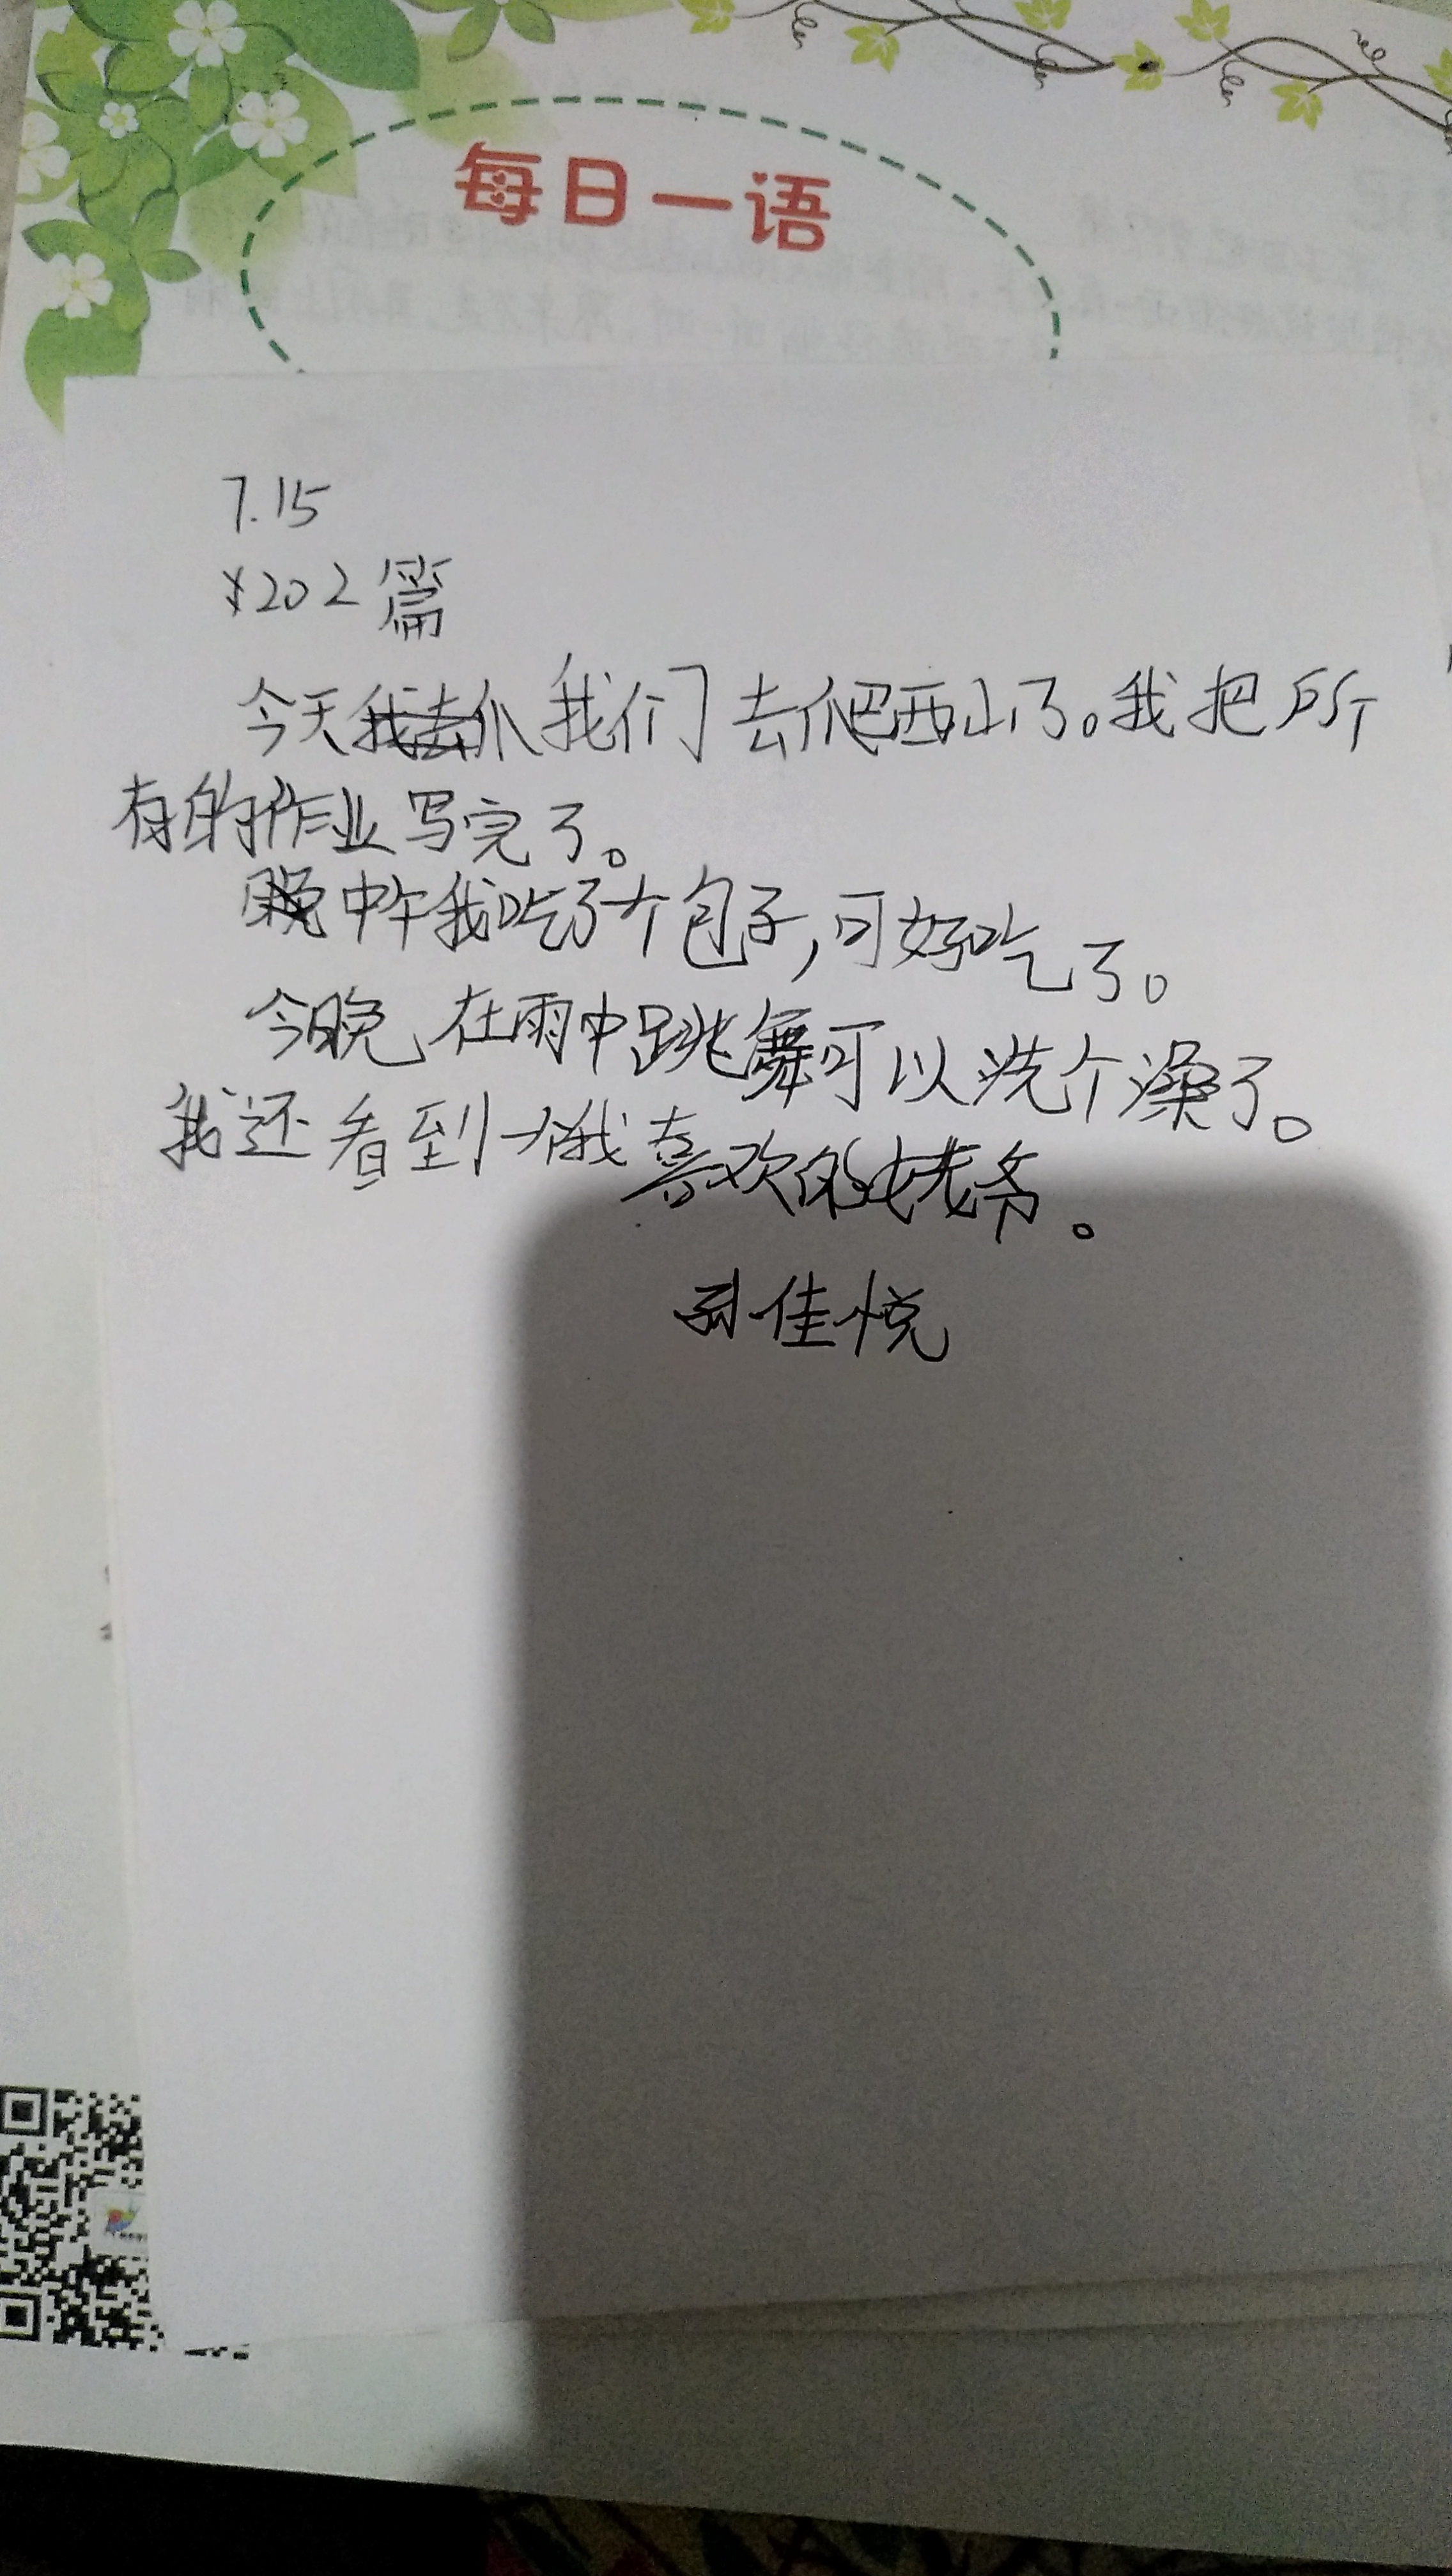 每日一语
7.15
202篇
今天我们去爬西山了。我把所
有的作业写完了。
中午我吃了个包子,可好吃了。
今晚在雨中跳舞可以洗个澡了。
我还看到一个我喜欢的姥爷。
孙佳悦